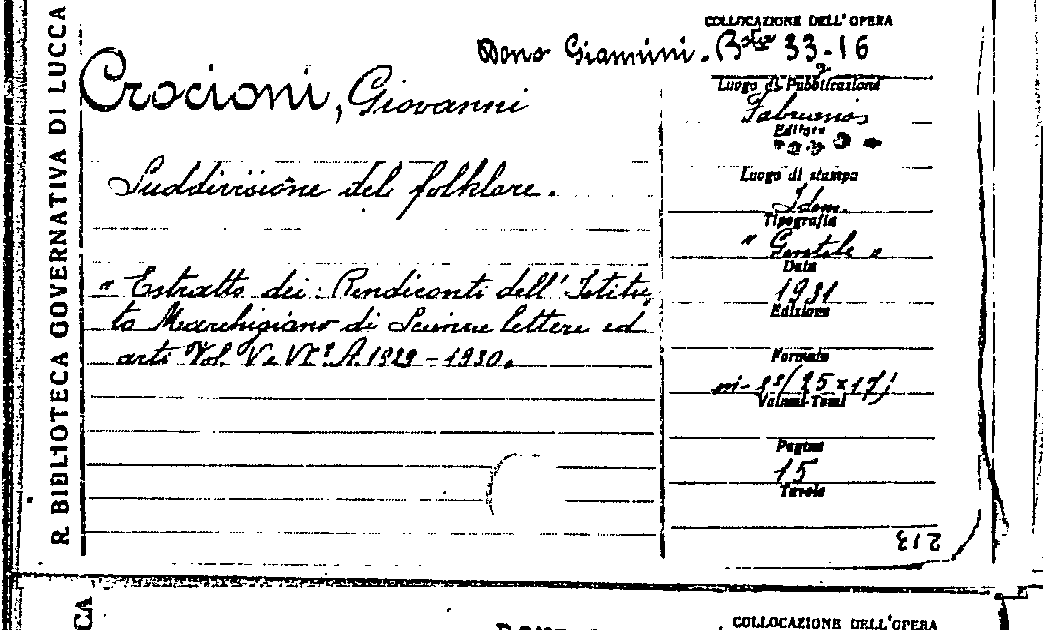 R. BIBLIOTECA GOVERNATIVA DI LUCCA
COLLOCAZIONE DELL'OPERA
Dono Giannini. Bta 33-16
Crocioni, Giovanni
Suddivisione del folklore.
" Estratto dei: Rendiconti dell' Istitu
to Marchigiano di Scienze lettere ed
arti Vol. V e VI°. A. 1929-1930.
Luogo di Pubblicazione
Fabriano
Editore
Luogo di stampa
Idem.
Tipografia
" Gentile "
Data
1931
Edizione
Formato
in-8° (25x17)
Volumi-Tomi
Pagine
15
Tavole
213
CA
COLLOCAZIONE DELL'OPERA